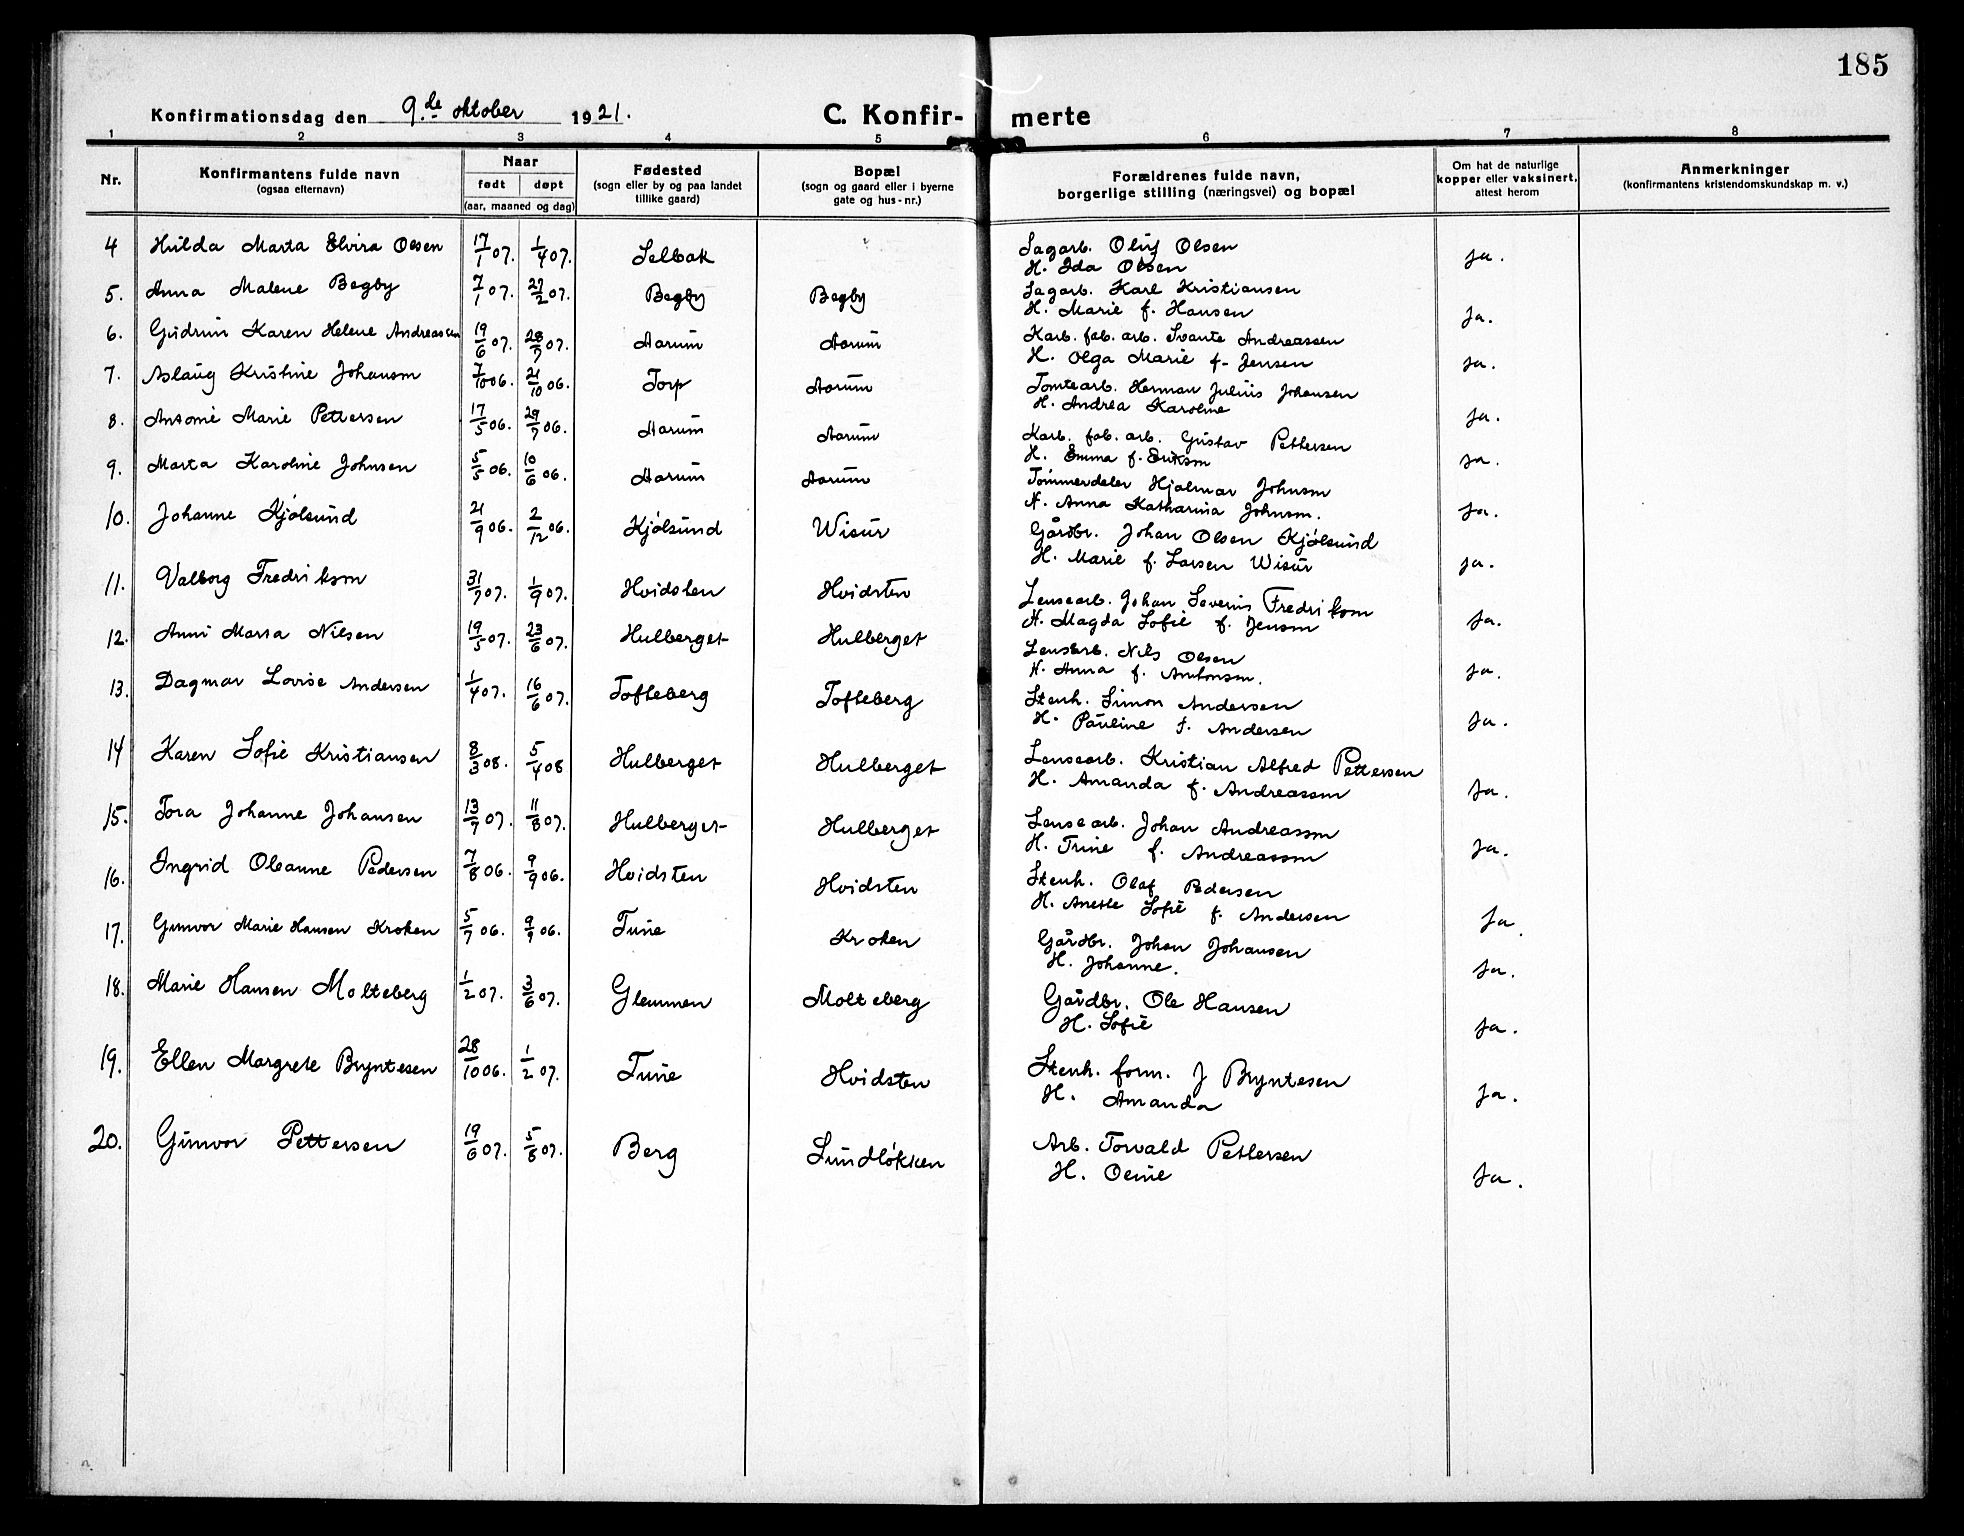 185
Konfirmationsdag den 9.de oktober 1921.
C. Konfir- merte
1 2 3 4 5 6 7 8
Nr.
Konfirmantens fulde navn
(ogsaa efternavn)
Naar
født døpt
(aar, maaned og dag)
Fødested
(sogn eller by og paa landet
tillike gaard)
Bopæl
(sogn og gaard eller i byerne
gate og hus-nr.)
Forældrenes fulde navn,
borgerlige stilling (næringsvei) og bopæl
Om hat de naturlige
kopper eller vaksinert,
attest herom
Anmerkninger
(konfirmantens kristendomskundskap m. v.)
4 Hilda Marta Elvira Olsen 17/1 07. 1/4 07. Selbak Sagarb. Oluf Olsen ja.
H. Ida Olsen
5. Anna Malene Begby 7/1 07. 27/2 07. Begby Begby Sagarb. Karl Kristiansen
H. Marie f. Hansen ja.
6. Gudrun Karen Helene Andreassen 19/6 07. 28/7 07. Aarum Aarum Karb. fab. arb. Svante Andreassen
H. Olga Marie f. Jensen ja.
7. Aslaug Kristine Johansen 7/10 06. 21/10 06. Torp Aarum Tomtearb. Herman Julius Johansen
H. Andrea Karoline ja.
8. Antonie Marie Pettersen 17/5 06. 29/7 06. Aarum Aarum Karb. fab. arb. Gustav Pettersen
H. Emma f. Eriksen ja.
9. Marta Karoline Johnsen 5/5 06. 10/6 06. Aarum Aarum Tømmerdeler Hjalmar Johnsen
H. Anna Katharina Johnsen. ja.
10. Johanne Kjølsund 21/9 06. 2/12 06. Kjølsund Wisur Gårdbr. Johan Olsen Kjølsund
H. Marie f. Larsen Wisur ja.
11. Valborg Fredriksen 31/7 07. 1/9 07. Hvidsten Hvidsten Lensearb. Johan Severin Fredriksen
H. Magda Sofie f. Jensen ja.
12. Anni Marta Nilsen 19/5 07. 23/6 07. Hulberget Hulberget Lensarb. Nils Olsen
H. Anna f. Antonsen. ja.
13. Dagmar Lovise Andersen 1/4 07. 16/6 07. Tofteberg Tofteberg Stenh. Simon Andersen
H. Pauline f. Andersen ja.
14 Karen Sofie Kristiansen 8/3 08. 5/4 08 Hulberget Hulberget Lensearb. Kristian Alfred Pettersen
H. Amanda f. Andreassen ja.
15. Tora Johanne Johansen 13/7 07. 11/8 07. Hulberget Hulberget Lensearb. Johan Andreassen
H. Trine f. Andreassen ja.
16. Ingrid Oleanne Pedersen 7/8 06. 9/9 06. Hvidsten Hvidsten Stenh. Olaf Pedersen
H. Anette Sofie f. Andersen ja.
17. Gunvor Marie Hansen Kroken 5/7 06. 9/9 06. Tune Kroken Gårdbr. Johan Johansen
H. Johanne. ja.
18. Marie Hansen Molteberg 1/2 07. 3/6 07. Glemmen Molteberg Gårdbr. Ole Hansen
H. Sofie ja.
19. Ellen Margrete Bryntesen 28/10 06. 1/2 07. Tune Hvidsten Stenh. form. J Bryntesen
H. Amanda ja.
20. Gunvor Pettersen 19/6 07. 5/8 07. Berg Lundløkken Arb. Torvald Pettersen
H. ja.